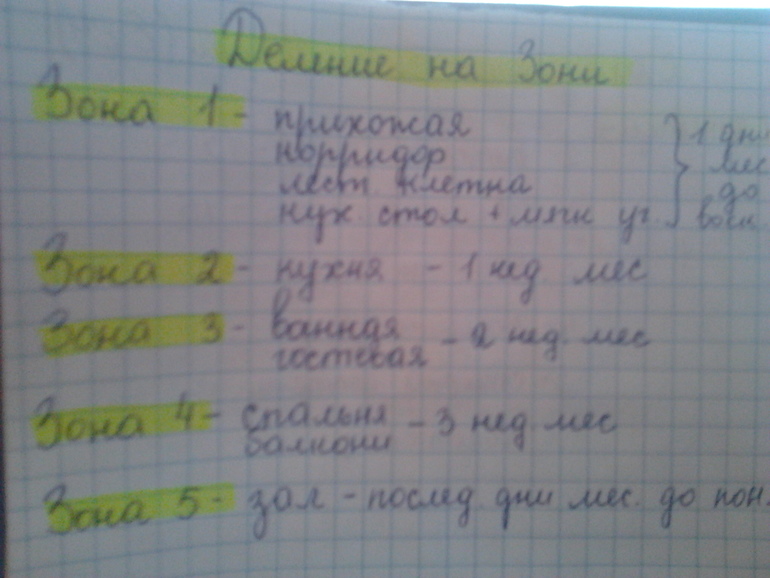 Деление на Зони
Зона 1 - прихожая } 1 дни
корридор мес
лест. клетка до
кух. стол + мягк уг. воск
Зона 2 - кухня - 1 нед мес
Зона 3 - ванная - 2 нед. мес
гостевая
Зона 4 - спальня - 3 нед мес
балкони
Зона 5 - зал - послед. дни мес. до пон.